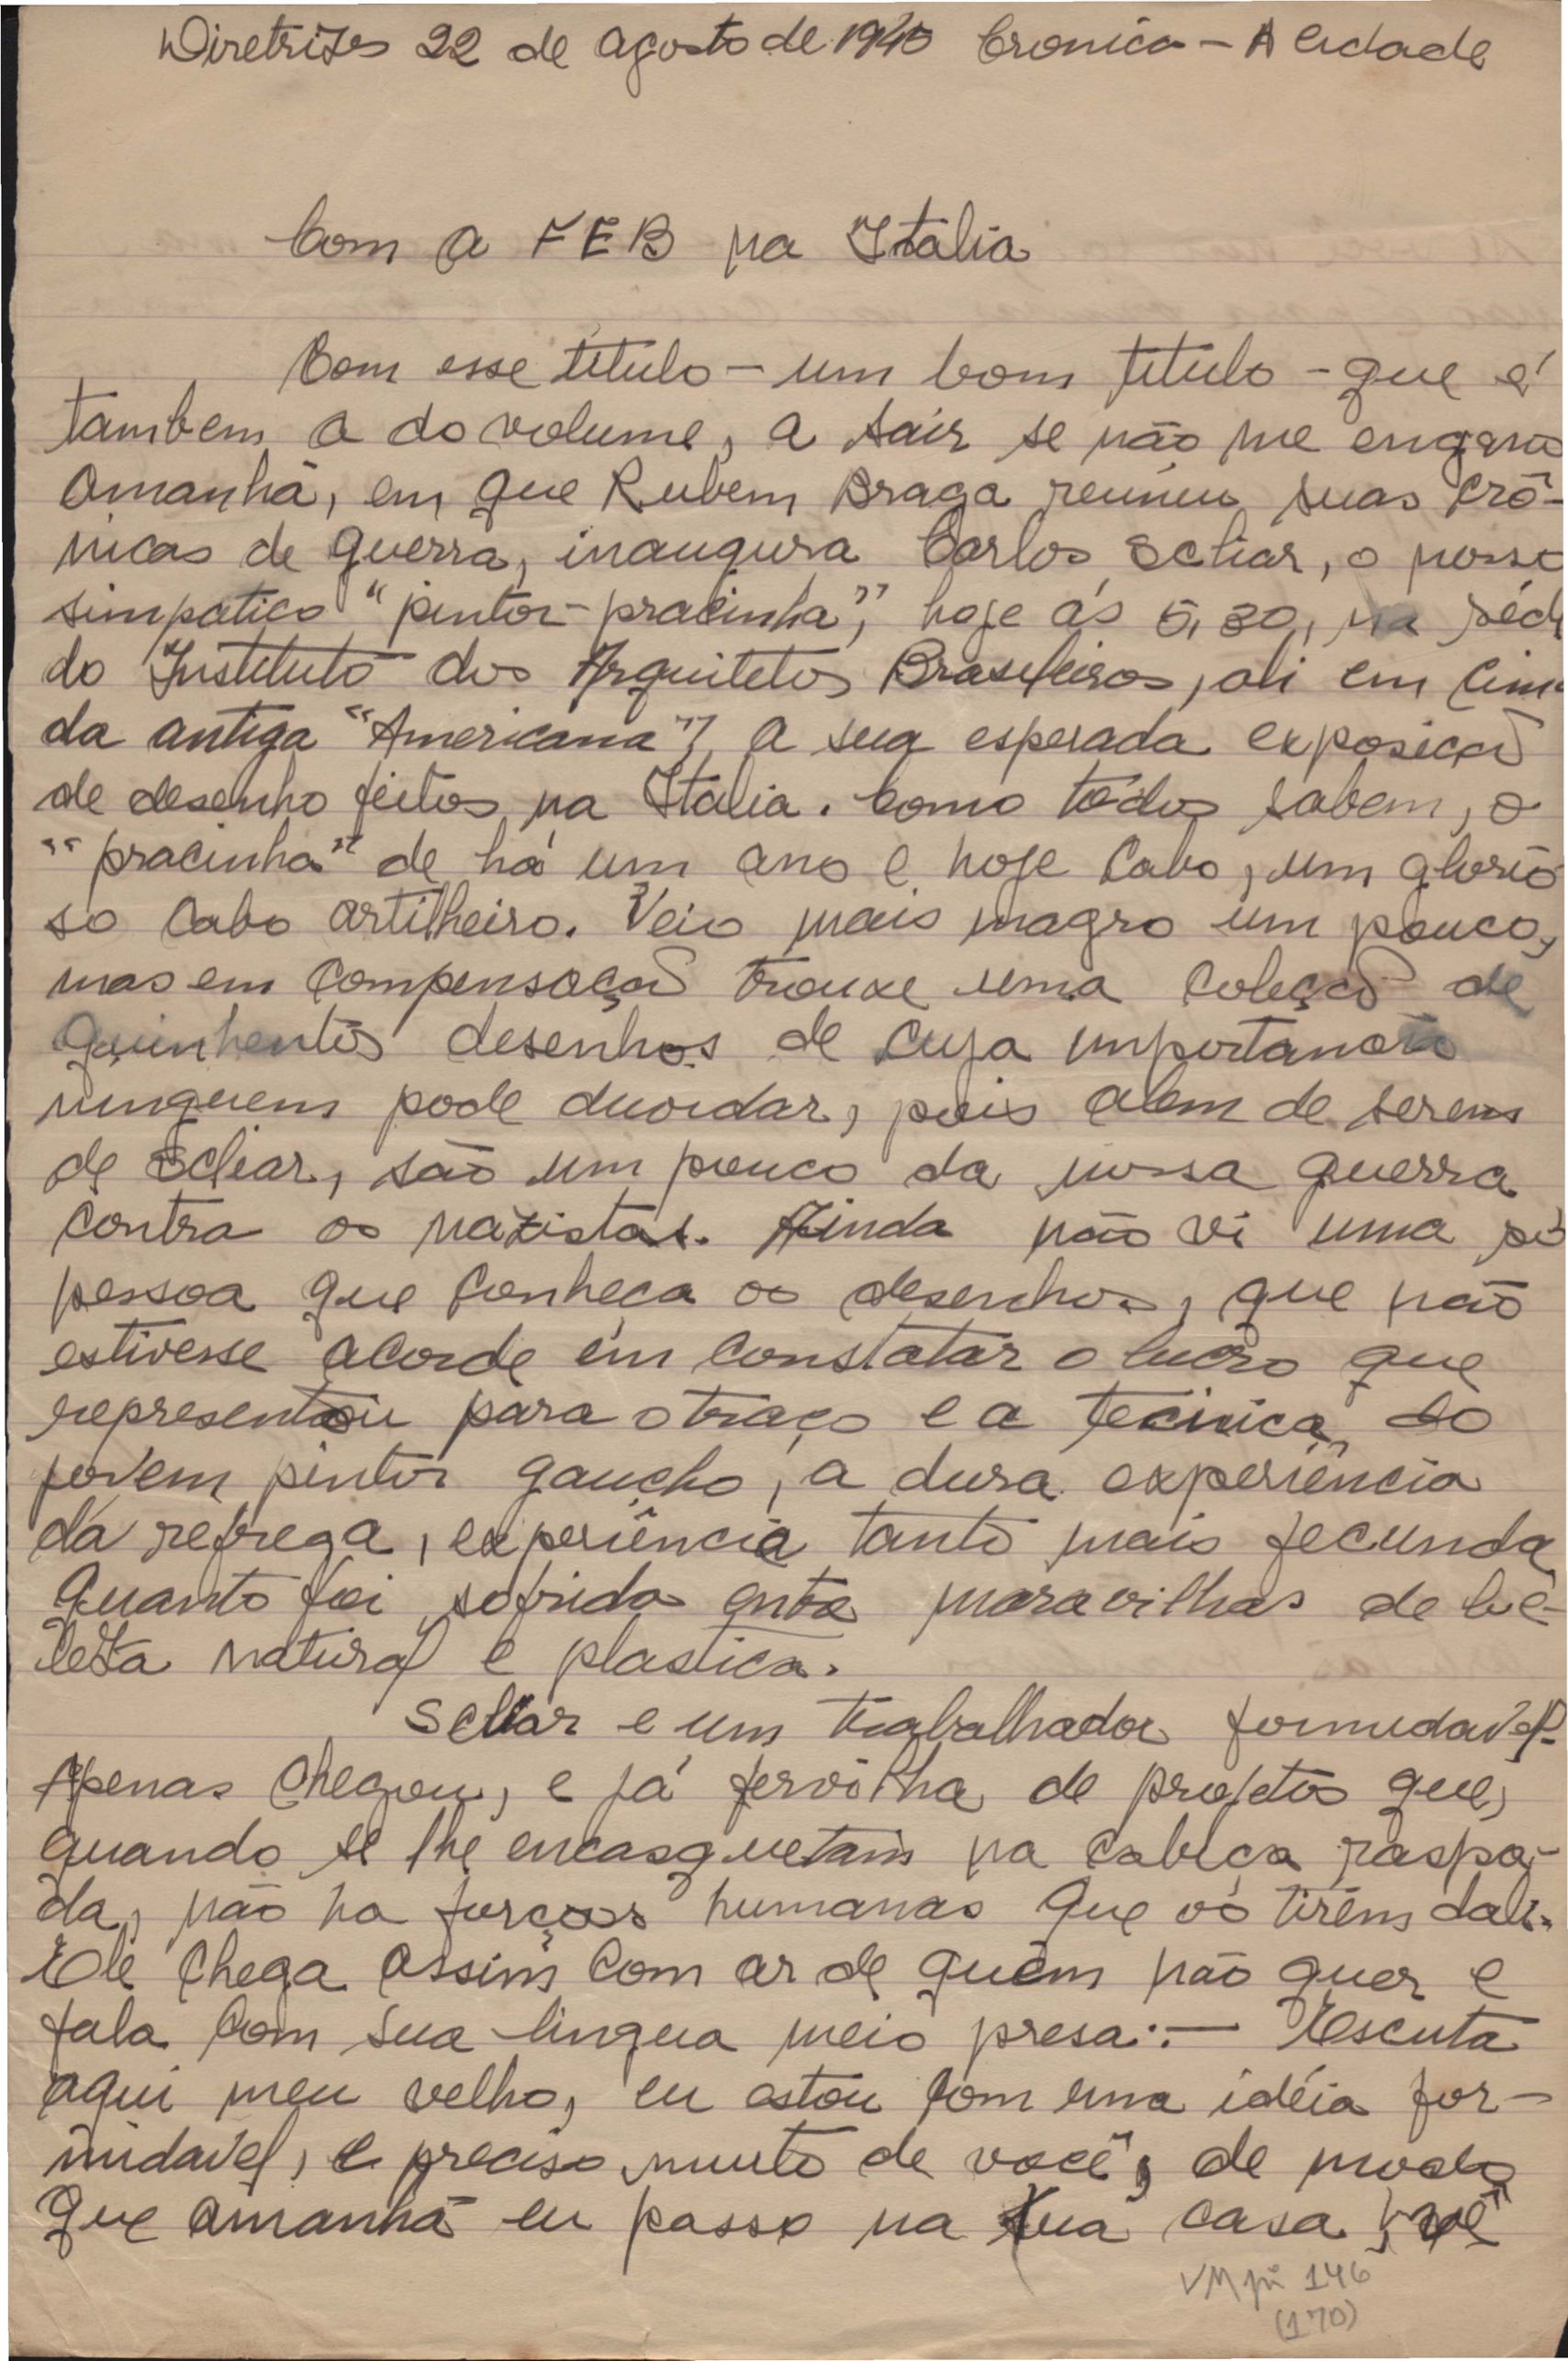 Diretrizes 22 de agosto de 1940 Cronica - A cidade
Com a FEB na Italia
Com esse titulo - um bom titulo - que é
tambem o do volume, a sair se não me engano
amanhã, em que Rubem Braga reuniu suas crô-
nicas de guerra, inaugura Carlos Scliar, o nosso
simpatico "pintor-pracinha", hoje ás 5,30, na séde
do Instituto dos Arquitetos Brasileiros, ali em cima
da antiga "Americana", a sua esperada exposição
de desenho feitos na Italia. Como todos sabem, o
"pracinha" de há um ano e hoje Cabo, um glorio
so Cabo artilheiro. Veio mais magro um pouco,
mas em compensação trouxe uma coleção de
quinhentos desenhos de cuja importancia
ninguem pode duvidar, pois alem de serem
de Scliar, são um pouco da nossa guerra
contra os nazistas. Ainda não vi uma só
pessoa que conheça os desenhos, que não
estivesse acorde em constatar o lucro que
representou para o traço e a tecnica do
jovem pintor gaucho, a dura experiência
da refrega, experiência tanto mais fecunda
quanto foi sofrida entre maravilhas de be-
leza natural e plastica.
Scliar e um trabalhador formidavel.
Apenas chegou, e já fervilha de projetos que,
quando se lhe encasquetam na cabeça raspa-
da, não ha forças humanas que os tirem dali.
Ele chega assim com ar de quem não quer e
fala com sua lingua meio presa: - Escuta
aqui meu velho, eu estou com uma idéia for-
midavel, e preciso muito de você, de modo
que amanhã eu passo na sua casa,
146
(170)